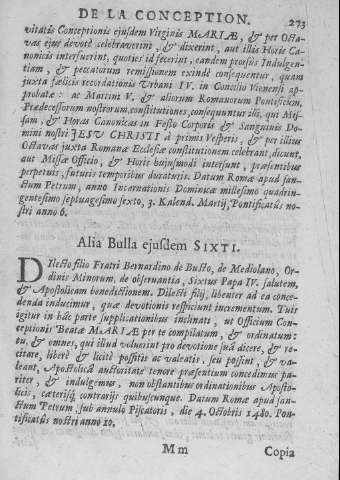 DE LA CONCEPTION. 273
vitatis Conceptionis ejusdem Virginis MARIÆ, & per Octa-
vas ejus devotè celebraverint, & dixerint, aut illis Horis Ca-
nonicis interfuerint, quoties id fecerint, eandem prorsùs Indulgen-
tiam, & peccatorum remissionem exindè consequentur, quam
juxta fœlicis recordationis Urbani IV. in Concilio Viennensi ap-
probatæ: ac Martini V. & aliorum Romanorum Pontificum,
Prædecessorum nostrorum, constitutiones, consequuntur illi, qui Mis-
sam, & Horas Canonicas in Festo Corporis & Sanguinis Do-
mini nostri JESU CHRISTI à primis Vesperis, & per illius
Octavas juxta Romanæ Ecclesiæ constitutionem celebrant, dicunt,
aut Missæ Officio, & Horis hujusmodi intersunt, præsentibus
perpetuis, futuris temporibus duraturis. Datum Romæ apud san-
ctum Petrum, anno Incarnationis Dominicæ millesimo quadrin-
gentesimo septuagesimo sexto, 3. Kalend. Martij, Pontificatûs no-
stri anno 6.
Alia Bulla ejusdem SIXTI.
DIlecto filio Fratri Bernardino de Busto, de Mediolano, Or-
dinis Minorum, de observantia, Sixtus Papa IV. salutem,
& Apostolicam benedictionem. Dilecti filij, libenter ad ea conce-
denda inducimur, quæ devotionis respiciunt incrementum. Tuis
igitur in hâc parte supplicationibus inclinati, ut Officium Con-
ceptionis Beatæ MARIÆ per te compilatum, & ordinatum:
tu, & omnes, qui illud voluerint pro devotione suâ dicere, & re-
citare, liberè & licitè possitis ac valeatis, seu possint, & va-
leant, Apostolicâ auctoritate tenore præsentium concedimus pa-
riter, & indulgemus, non obstantibus ordinationibus Aposto-
licis, cæterisq; contrarijs quibuscunque. Datum Romæ apud san-
ctum Petrum, sub annulo Piscatoris, die 4. Octobris 1480. Pon-
tificatûs nostri anno 10.
Mm Copia